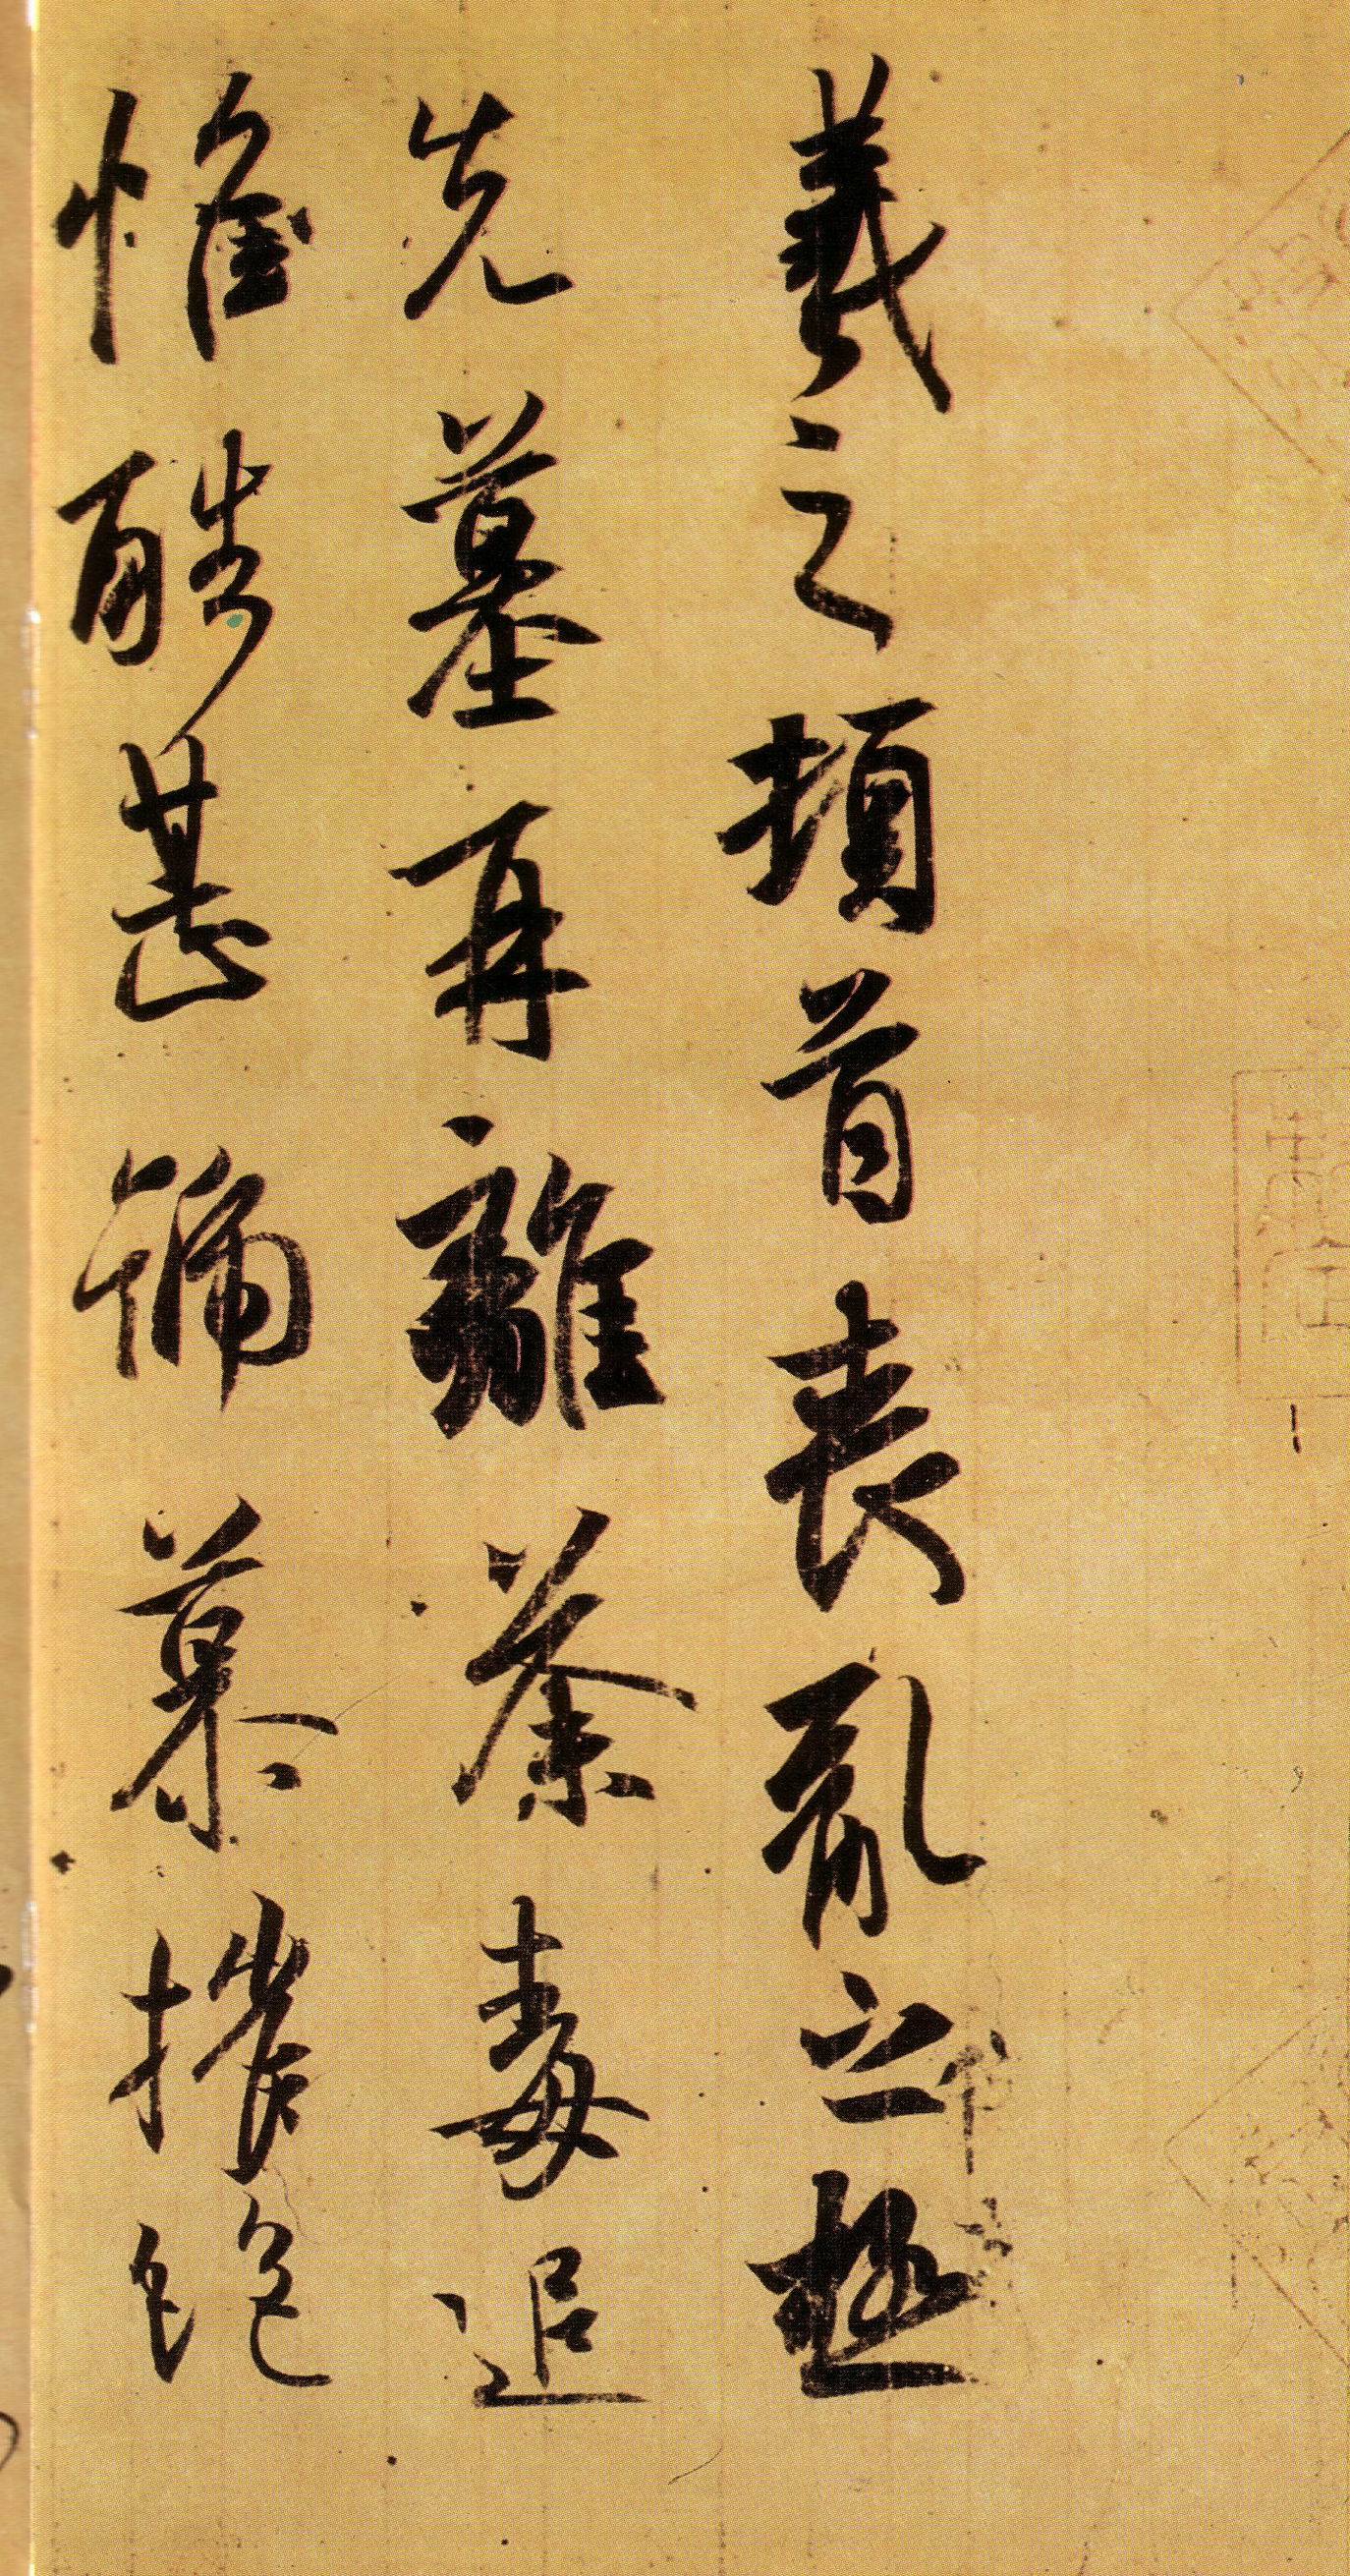 羲之頓首喪亂之極
先墓再離荼毒追
惟酷甚號慕摧絶